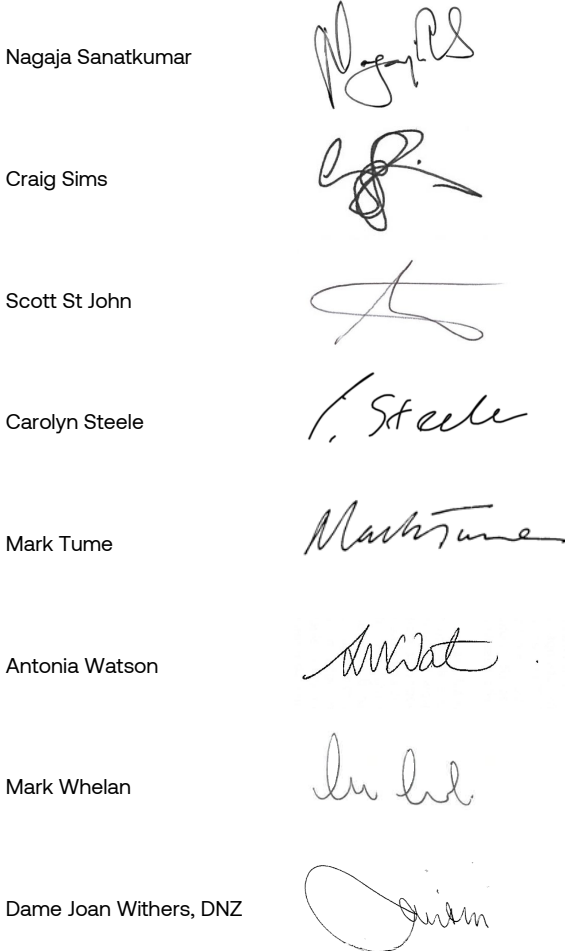 Nagaja Sanatkumar
Craig Sims
Scott St John
Carolyn Steele
Steele
Mark Tume
Mark Tume
Antonia Watson
Mark Whelan
Dame Joan Withers, DNZ